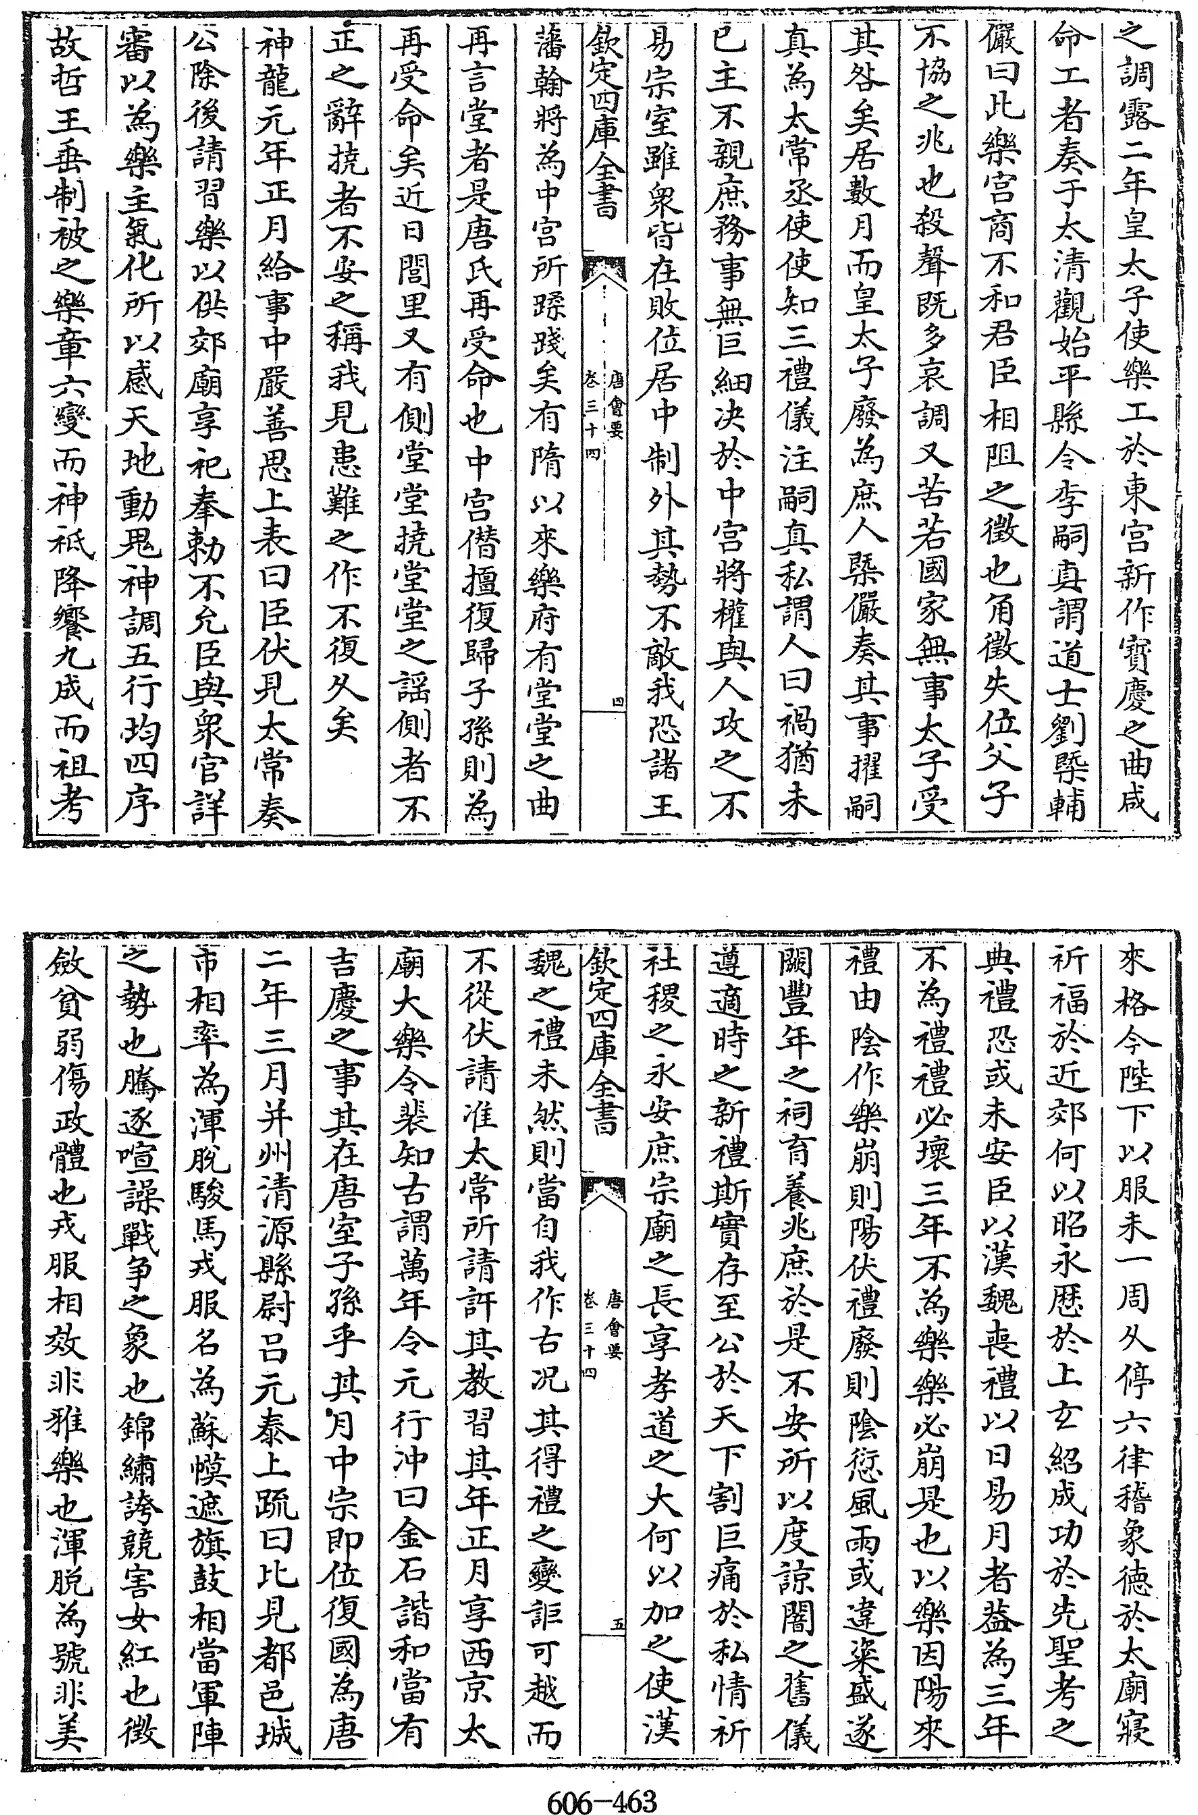 之調露二年皇太子使樂工於東宮新作寳慶之曲咸
命工者奏于太清觀始平縣令李嗣真謂道士劉槩輔
儼曰此樂宫商不和君臣相阻之徵也角徵失位父子
不協之兆也殺聲既多哀調又苦若國家無事太子受
其咎矣居數月而皇太子廢為庶人槩儼奏其事擢嗣
真為太常丞使使知三禮儀注嗣真私謂人曰禍猶未
已主不親庶務事無巨細决於中宫將權與人攻之不
易宗室雖衆皆在散位居中制外其勢不敵我恐諸王
欽定四庫全書
唐會要
卷三十四
四
藩翰將為中宫所蹂踐矣有隋以來樂府有堂堂之曲
再言堂者是唐氏再受命也中宫僣擅復歸子孫則為
再受命矣近日閭里又有側堂堂撓堂堂之謡側者不
正之辭撓者不安之稱我見患難之作不復久矣
神龍元年正月給事中嚴善思上表曰臣伏見太常奏
公除後請習樂以供郊廟享祀奉勅不允臣與衆官詳
審以為樂主氣化所以感天地動鬼神調五行均四序
故哲王垂制被之樂章六變而神祗降饗九成而祖考
來格今陛下以服未一周久停六律稽象德於太廟寢
祈福於近郊何以昭永歴於上玄紹成功於先聖考之
典禮恐或未安臣以漢魏喪禮以日易月者葢為三年
不為禮禮必壞三年不為樂樂必崩是也以樂因陽來
禮由陰作樂崩則陽伏禮廢則陰愆風雨或違粢盛遂
闕豐年之祠育養兆庶於是不安所以度諒闇之舊儀
遵適時之新禮斯實存至公於天下割巨痛於私情祈
社稷之永安庶宗廟之長享孝道之大何以加之使漢
欽定四庫全書
唐會要
卷三十四
五
魏之禮未然則當自我作古况其得禮之變詎可越而
不從伏請准太常所請許其教習其年正月享西京太
廟大樂令裴知古謂萬年令元行沖曰金石諧和當有
吉慶之事其在唐室子孫乎其月中宗即位復國為唐
二年三月并州清源縣尉吕元泰上䟽曰比見都邑城
市相率為渾脫駿馬戎服名為蘇幙遮旗鼓相當軍陣
之勢也騰逐喧譟戰爭之象也錦繡誇競害女紅也徵
斂貧弱傷政體也戎服相效非雅樂也渾脱為號非美
606-463